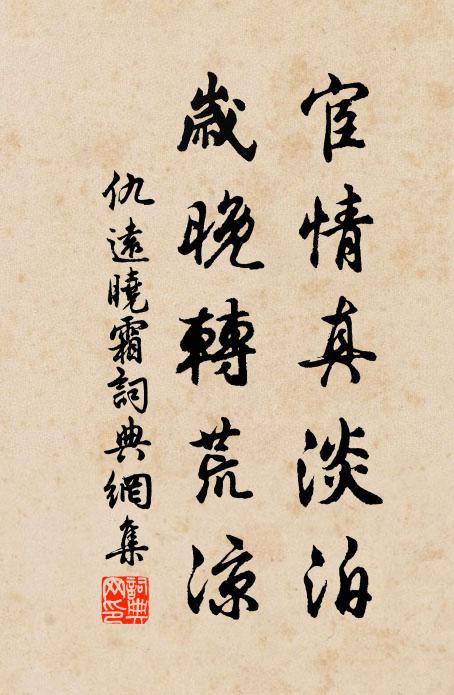 宦情真淡泊
歲晚轉荒涼
仇遠曉霜詞典網集
詞典網印